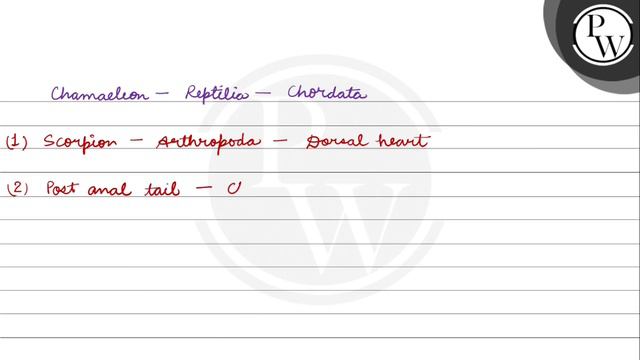 PW
Chamaeleon - Reptilia - Chordata
(1) Scorpion - Arthropoda - Dorsal heart
(2) Post anal tail - C
PW